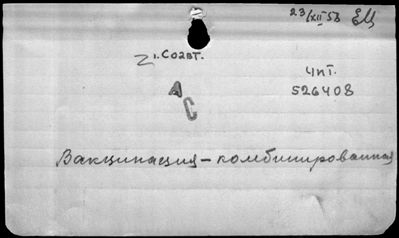 23/XII 53 ЕЦ
1. Соавт.
ЧПI.
526408
А
С
Вакцинация – комбинированная